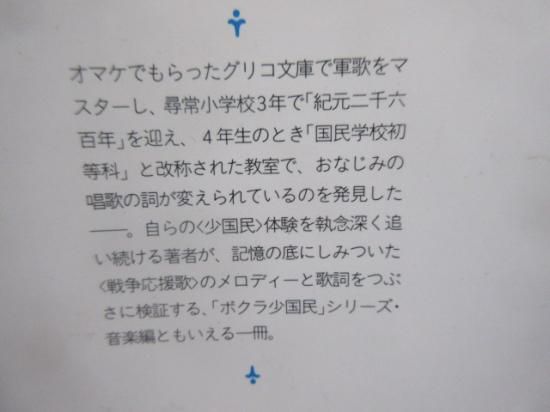 オマケでもらったグリコ文庫で軍歌をマ
スターし、尋常小学校3年で「紀元二千六
百年」を迎え、4年生のとき「国民学校初
等科」と改称された教室で、おなじみの
唱歌の詞が変えられているのを発見した
――。自らの〈少国民〉体験を執念深く追
い続ける著者が、記憶の底にしみついた
〈戦争応援歌〉のメロディーと歌詞をつぶ
さに検証する、「ボクラ少国民」シリーズ・
音楽編ともいえる一冊。